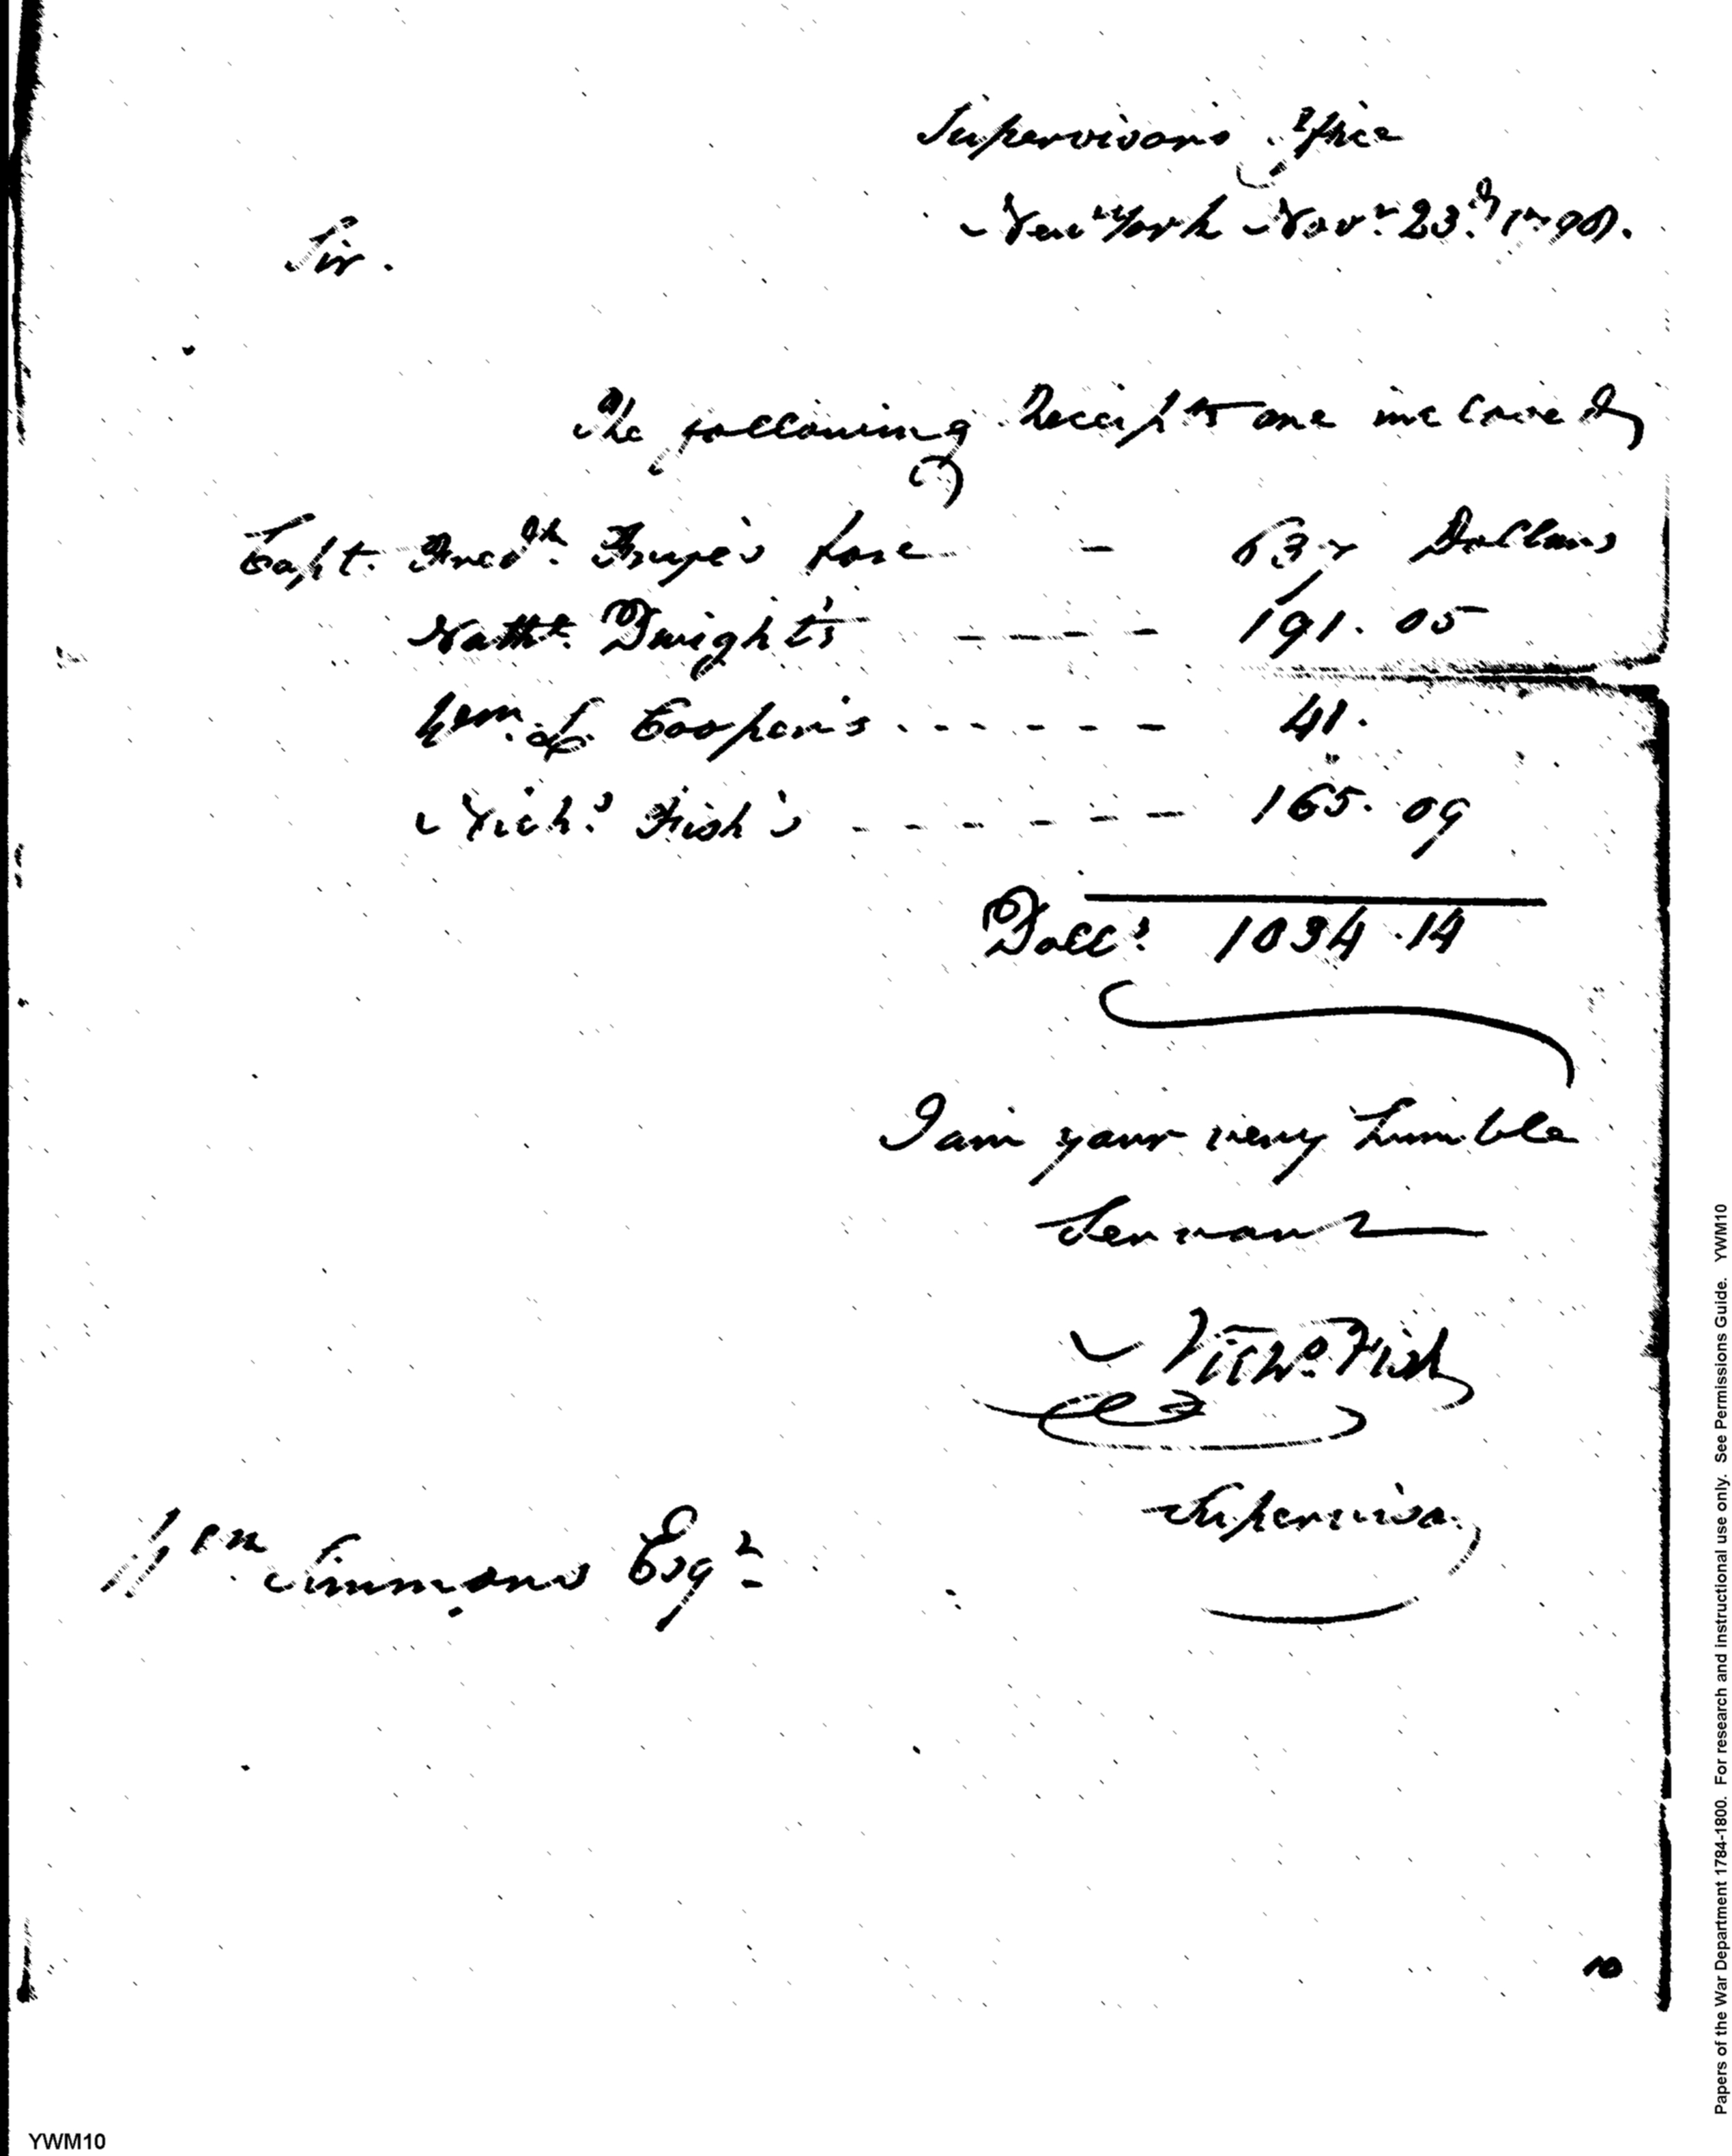 Supervisors Office
New York Nov.r 23.d 1798.
Sir.
The following Receipts are inclosed
Capt. Fred.k Frye's for - 637 Dollars
Nath.l Dwight's - - - - 191.05
Wm. L. Cooper's . - - - - - 41.
Nich.s Fish's - - - - - - 165.09
Doll.s 1034.14
I am your very humble
Servant
Nichs. Fish
Supervisor
Wm. Simmons Esq.r
10
YWM10
Papers of the War Department 1784-1800. For research and instructional use only. See Permissions Guide. YWM10